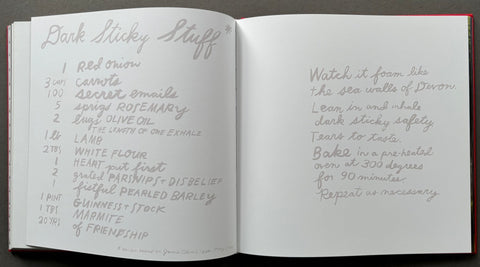 Dark Sticky Stuff*
1 Red onion
3 CUPS carrots
100 secret emails
5 sprigs ROSEMARY
2 lugs OLIVE OIL
THE LENGTH OF ONE EXHALE
1 LB LAMB
2 TBS WHITE FLOUR
1 HEART put first
2 grated PARSNIPS + DISBELIEF
1 fistful PEARLED BARLEY
1 PINT GUINNESS + STOCK
1 TBS MARMITE
20 YRS of FRIENDSHIP
Watch it foam like
the sea walls of Devon.
Lean in and inhale
dark sticky safety
Tears to taste.
Bake in a pre-heated
oven at 300 degrees
for 90 minutes
Repeat as necessary